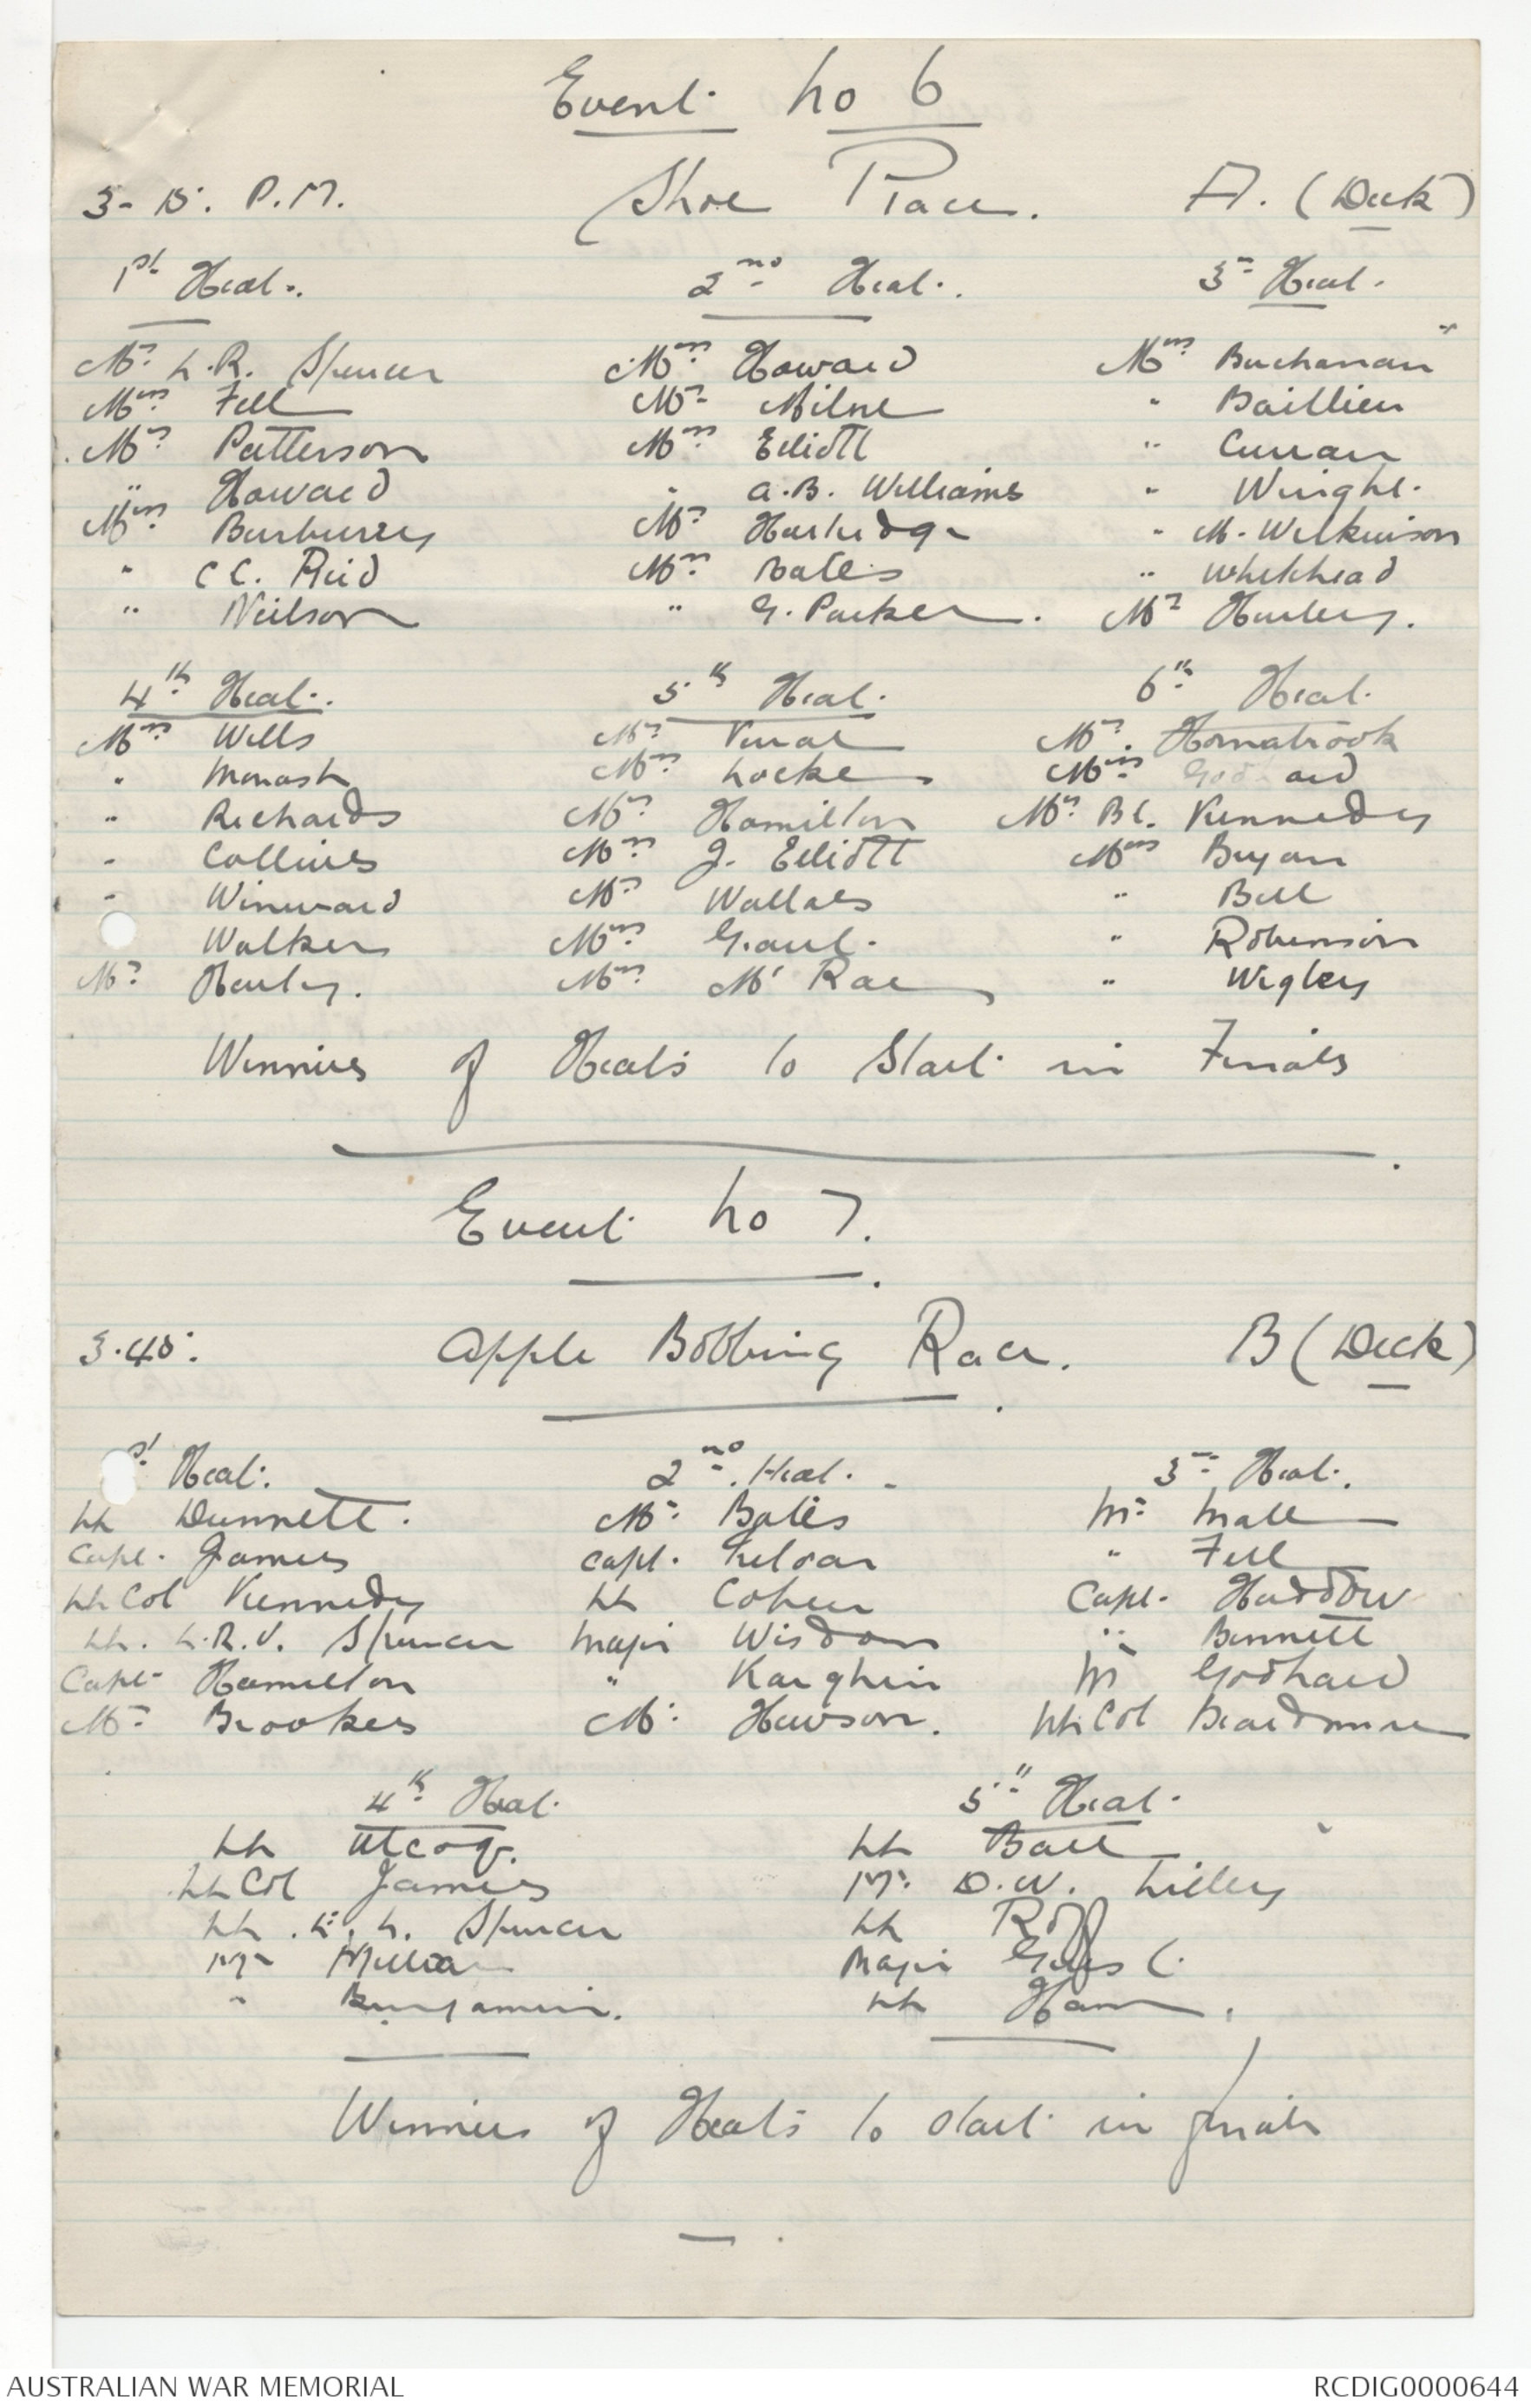 Event No 6
3-15. P.M. Shoe Race. A. (Deck)
1st Heat. 2nd Heat. 3rd Heat.
Mr L.R. Spencer Mrs Howard Mrs Buchanan
Mrs Fell Mr Milne " Baillieu
Mr Patterson Mrs Elliott " Curran
" Howard " A.B. Williams " Wright.
Mrs Burbury Mr " M. Wilkinson
" C C. Reid Mrs Bates " Whitehead
" Neilson " G. Parker. Mr Hurley.
4th Heat. 5th Heat. 6th Heat.
Mrs Wells Mr Mr. Hornabrook
" Monash Mrs Locke Mrs Godhard
" Richards Mr Hamilton Mr B C. Kennedy
" Collins Mrs J. Elliott Mrs Bryan
" Winward Mr Wallace " Bell
Walker Mrs Gaul. " Robinson
Mr Hurley. Mrs Mc Rae " Wigley
Winners of Heats to Start in Finals
Event No 7.
3.45. Apple Bobbing Race. B (Deck)
st Heat. 2nd. Heat. 3rd Heat.
Lt Dunnett. Mr Bates Mr Mall
Capt. James Capt. " Fell
Lt Col Kennedy Lt Cohen Capt. Haddow
Lt. L.R.V. Spencer Major Wisdom " Bennett
Capt Hamilton " Mr Godhard
Mr Brookes Mr Hewson. Lt Col Beardmore
4th Heat. 5th Heat.
Lt Lt Ball
Lt Col James Mr D.W. Lilley
Lt. L. Spencer Lt Roff
Mr Major Giles C.
" Benjamin. Lt Ham.
Winners of Heats to start in finals
AUSTRALIAN WAR MEMORIAL RCDIG0000644